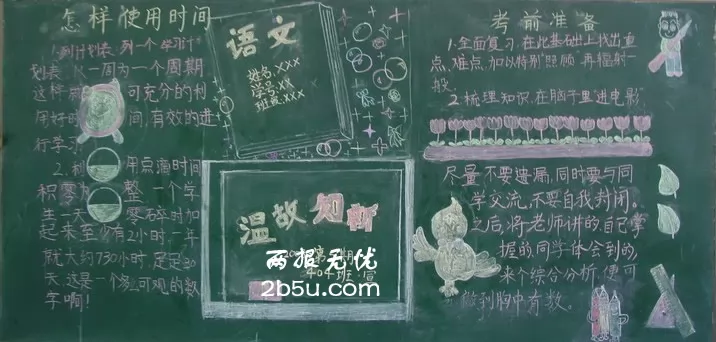 怎样使用时间
1.列计划表:列一个学习计
划表,以一周为一个周期,
这样 可充分的利
用好时 间,有效的进
行学习
2.利 用点滴时间
积零为 整 一个学
生一天 零碎时加
起来至少有2小时,一年
就大约730小时,足足30
天,这是一个多么可观的数
字啊!
语文
姓名:XXX
学号:XX
班级:XXX
温故知新
404班 宣
两报无忧
2b5u.com
考前准备
1.全面复习,在此基础上找出重
点、难点,加以特别照顾,再辐射一
般。
2.梳理知识,在脑子里进电影,
尽量不要遗漏,同时要与同
学交流,不要自我封闭。
之后,将老师讲的,自己掌
握的,同学体会到的,
来个综合分析,便可
做到胸中有数。